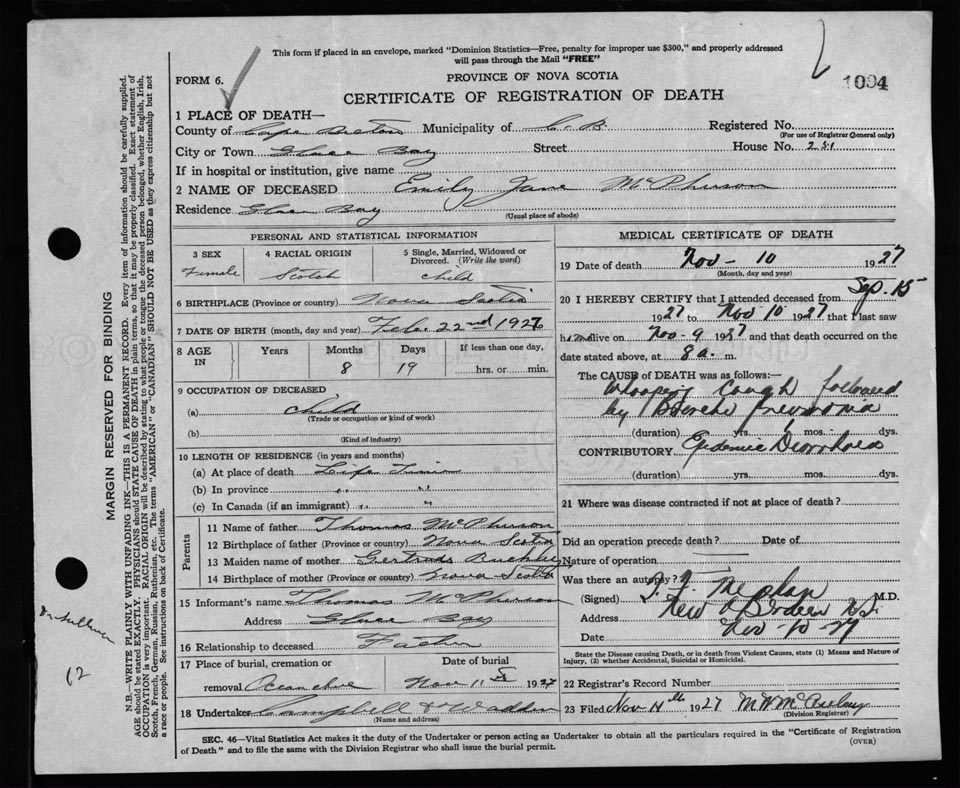 This form if placed in an envelope, marked "Dominion Statistics—Free, penalty for improper use $300," and properly addressed
will pass through the Mail "FREE"
1094
FORM 6.
PROVINCE OF NOVA SCOTIA
CERTIFICATE OF REGISTRATION OF DEATH
1 PLACE OF DEATH—
County of Cape Breton Municipality of C. B. Registered No.
(For use of Registrar General only)
City or Town Glace Bay Street House No. 251
If in hospital or institution, give name
2 NAME OF DECEASED Emily Jane McPherson
Residence Glace Bay
(Usual place of abode)
PERSONAL AND STATISTICAL INFORMATION
3 SEX 4 RACIAL ORIGIN 5 Single, Married, Widowed or Divorced. (Write the word)
Female Scotch child
6 BIRTHPLACE (Province or country) Nova Scotia
7 DATE OF BIRTH (month, day and year) Feb. 22nd 1927
8 AGE IN Years Months Days If less than one day,
8 19 hrs. or min.
9 OCCUPATION OF DECEASED
(a) child
(Trade or occupation or kind of work)
(b)
(Kind of industry)
10 LENGTH OF RESIDENCE (in years and months)
(a) At place of death Life Time
(b) In province " "
(c) In Canada (if an immigrant) " "
Parents
11 Name of father Thomas McPherson
12 Birthplace of father (Province or country) Nova Scotia
13 Maiden name of mother Gertrude
14 Birthplace of mother (Province or country) Nova Scotia
15 Informant's name Thomas McPherson
Address Glace Bay
16 Relationship to deceased Father
17 Place of burial, cremation or Date of burial
removal Nov 11 1927
18 Undertaker Campbell & Wadden
(Name and address)
MEDICAL CERTIFICATE OF DEATH
19 Date of death Nov - 10 1927
(Month, day and year)
20 I HEREBY CERTIFY that I attended deceased from Sep. 15
1927 to Nov 10 1927 that I last saw
h alive on Nov - 9 1927 and that death occurred on the
date stated above, at 8 a. m.
The CAUSE of DEATH was as follows:—
Whooping Cough followed
by Broncho pneumonia
(duration) yrs. mos. dys.
CONTRIBUTORY Epidemic Diarrhoea
(duration) yrs. mos. dys.
21 Where was disease contracted if not at place of death?
Did an operation precede death? Date of
Nature of operation
Was there an autopsy?
(Signed) M.D.
Address New Aberdeen N.S.
Date Nov - 10 - 27
State the Disease causing Death, or in death from Violent Causes, state (1) Means and Nature of
Injury, (2) whether Accidental, Suicidal or Homicidal.
22 Registrar's Record Number
23 Filed Nov 14th 1927
(Division Registrar)
SEC. 46—Vital Statistics Act makes it the duty of the Undertaker or person acting as Undertaker to obtain all the particulars required in the "Certificate of Registration
of Death" and to file the same with the Division Registrar who shall issue the burial permit.
(OVER)
MARGIN RESERVED FOR BINDING
N.B.—WRITE PLAINLY WITH UNFADING INK—THIS IS A PERMANENT RECORD. Every item of information should be carefully supplied.
AGE should be stated EXACTLY. PHYSICIANS should STATE CAUSE OF DEATH in plain terms, so that it may be properly classified. Exact statement of
OCCUPATION is very important. RACIAL ORIGIN will be described by stating to what people or tongue the deceased person belonged, whether English, Irish,
Scotch, French, German, Russian, Ruthenian, etc. The terms "AMERICAN" or "CANADIAN" SHOULD NOT BE USED as they express citizenship but not
a race or people. See instructions on back of Certificate.